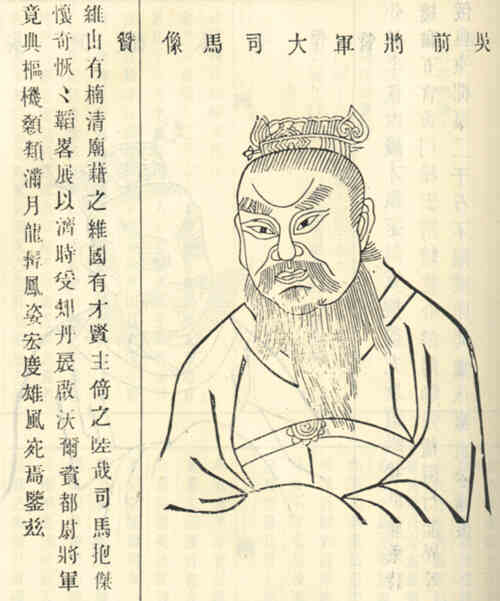 吳前將軍大司馬像贊
維山有楠清廟藉之維國有才賢主倚之陸哉司馬抱傑
懷奇恢〻韜畧展以濟時受知丹扆啟沃爾資都尉將軍
竟典樞機顙類滿月龍髯鳳姿宏度雄風宛焉鑒茲